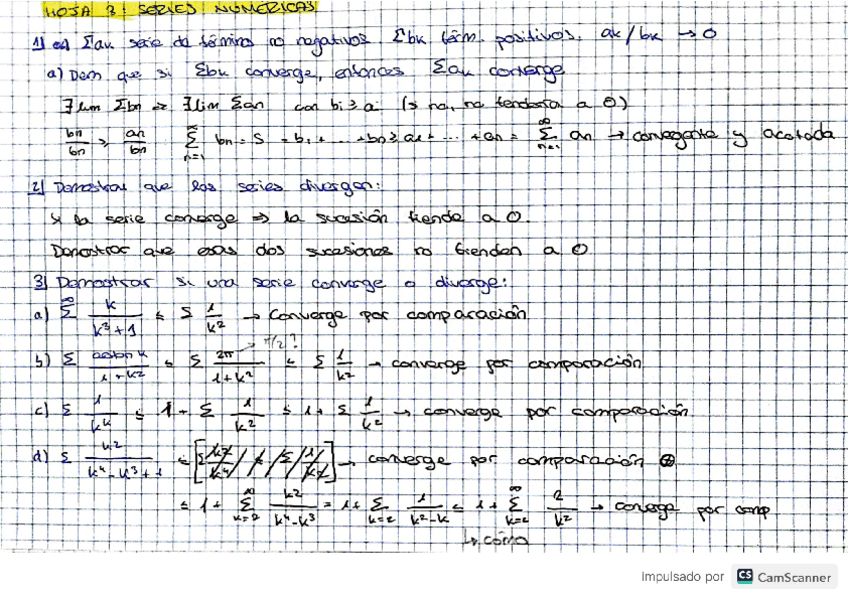 HOJA 3: SERIES NUMÉRICAS
1) Σak serie de términos no negativos Σbk térm. positivos. ak/bk → 0
a) Dem que si Σbk converge, entonces Σak converge
∃ lim Σbn ⇒ ∃ lim Σan con bi ≥ a (si no, no tendería a 0)
bn/bn ≥ an/bn Σ_{n=1}^∞ bn = S = b1 + ... + bn ≥ a1 + ... + an = Σ_{n=1}^∞ an → convergente y acotada
2) Demostrar que las series divergen:
Si la serie converge ⇒ la sucesión tiende a 0.
Demostrar que esas dos sucesiones no tienden a 0
3) Demostrar si una serie converge o diverge:
a) Σ^∞ k/(k³+1) ≤ Σ 1/k² → Converge por comparación
π/2?
b) Σ k/(1+k²) ≤ Σ 2π/(1+k²) ≤ Σ 1/k² → converge por comparación
c) Σ 1/k^k ≤ 1 + Σ 1/k² ≤ 1 + Σ 1/k² → converge por comparación
d) Σ k²/(k⁴-k³+1) ≤ → converge por comparación
≤ 1 + Σ_{k=2}^∞ k²/(k⁴-k³) = 1 + Σ_{k=2} 1/(k²-k) ≤ 1 + Σ_{k=2}^∞ 2/k² → converge por comp
↳ cómo
Impulsado por CS CamScanner